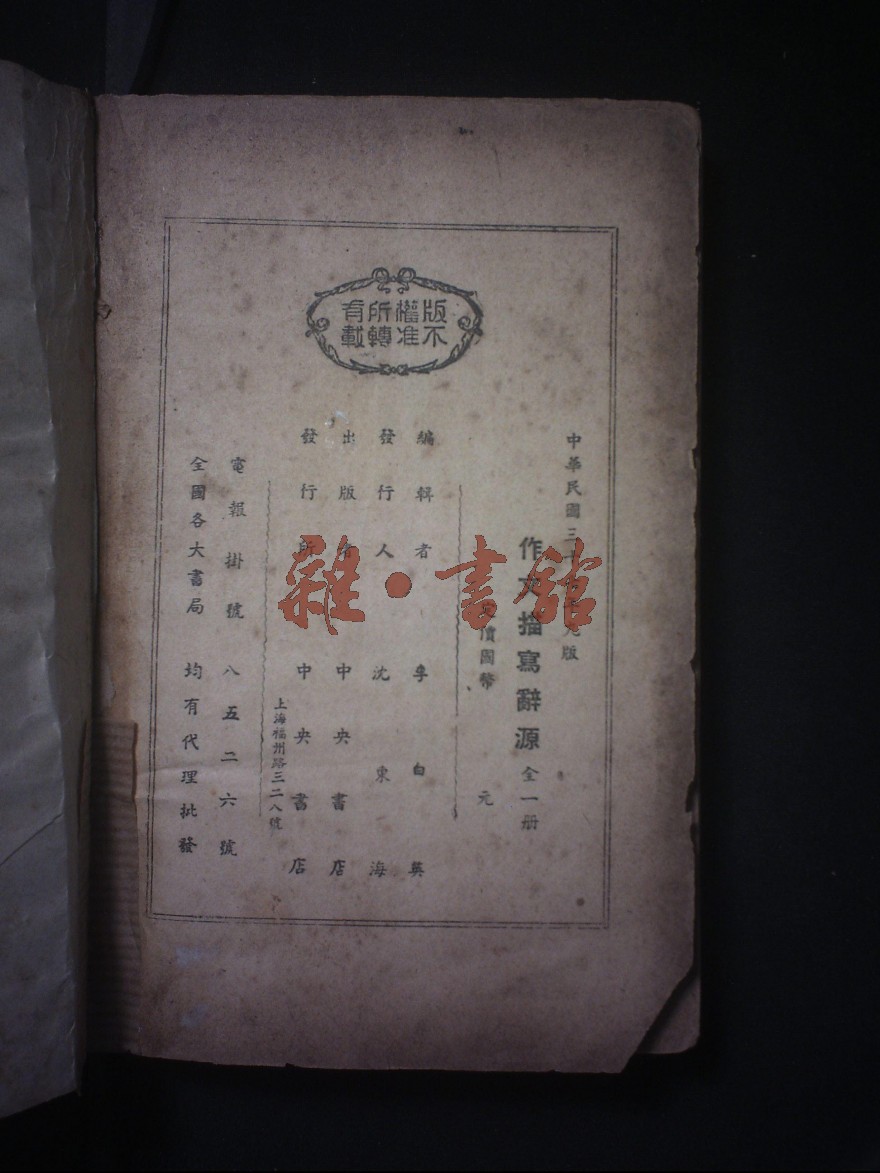 版權所有
不准轉載
中華民國三十 九版
作文描寫辭源 全一册
價國幣 元
編輯者 李白英
發行人 沈東海
出版者 中央書店
發行所 中央書店
上海福州路三二八號
電報掛號 八五二六號
全國各大書局 均有代理批發
雜·書館